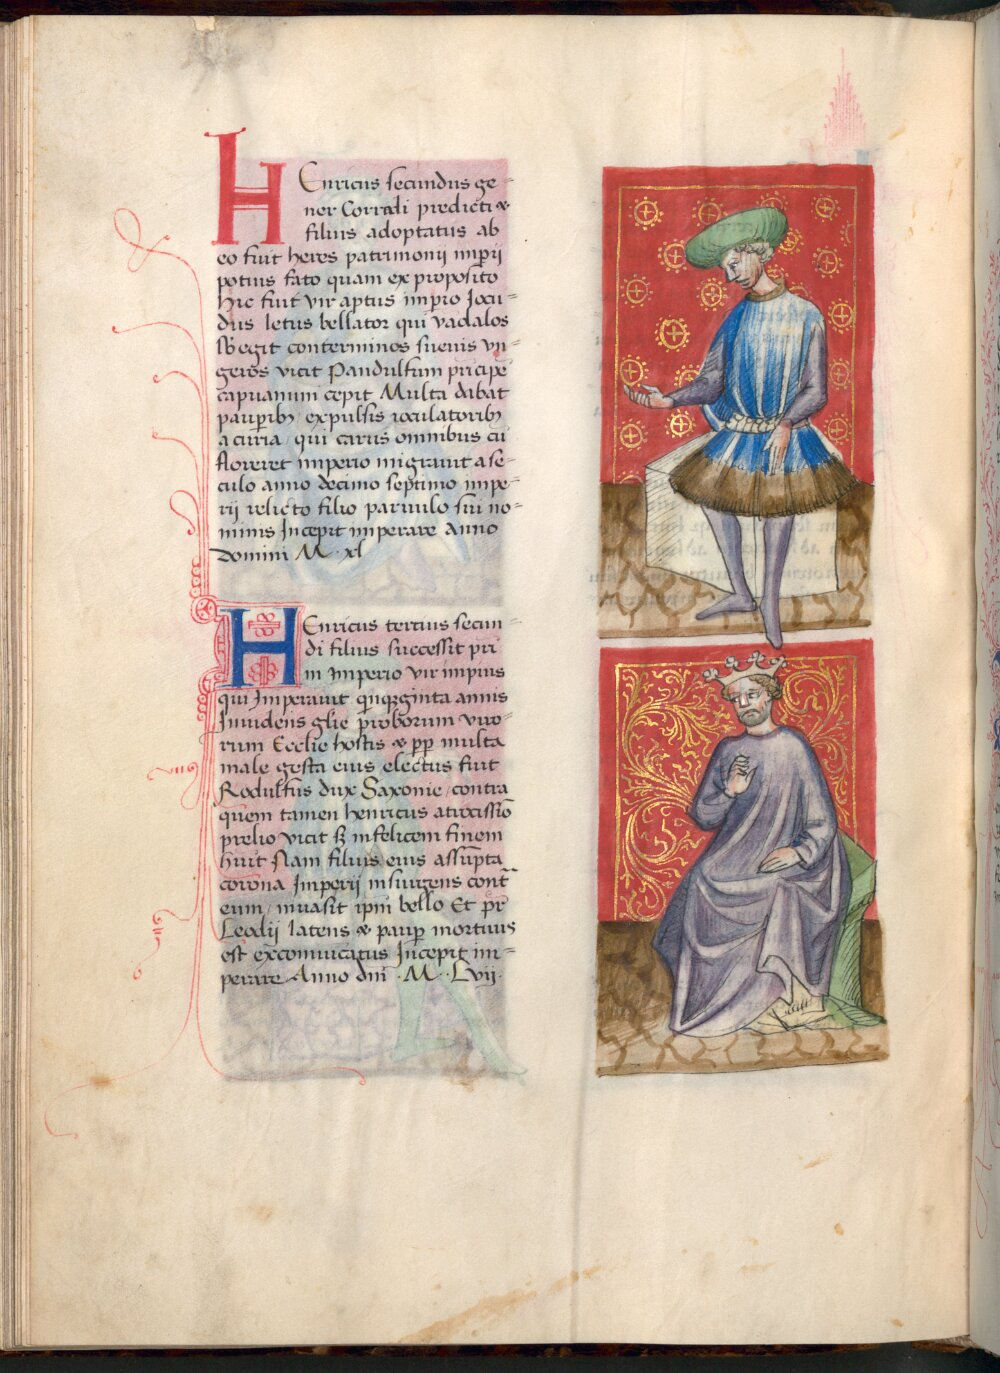 HEnricus secundus ge-
ner Corradi predicti &
filius adoptatus ab
eo fuit heres patrimonii imperij
potius fato quam ex proposito
hic fuit vir aptus imprio Iocu-
dus letus bellator qui vadalos
Regit conterminos sueuis vn-
geros vicit Pandulfum pricipe
capuanum cepit Multa dabat
paupib; expulsis ioculatorib;
a curia qui carus omnibus cu
floreret imperio migrauit a se-
culo anno decimo septimo impe-
rij relicto filio paruulo sui no-
minis Incepit imperare Anno
Domini M · xl
HEnricus tertius secun-
di filius successit pri
in Imperio vir impius
qui Imperauit qinqginta annis
Inuidens glie proborum viro-
rum Ecclie hostis & pp multa
male gesta eius electus fuit
Rodulfus dux Saxonie contra
quem tamen henricus atrocissio
prelio vicit s; infelicem finem
huit Nam filius eius assupta
corona Imperij insurgens cont
eum inuasit ipm bello Et pr
Leodij latens & paup mortuus
est excomuicatus Incepit im-
perare Anno dni · M · Lvij ·